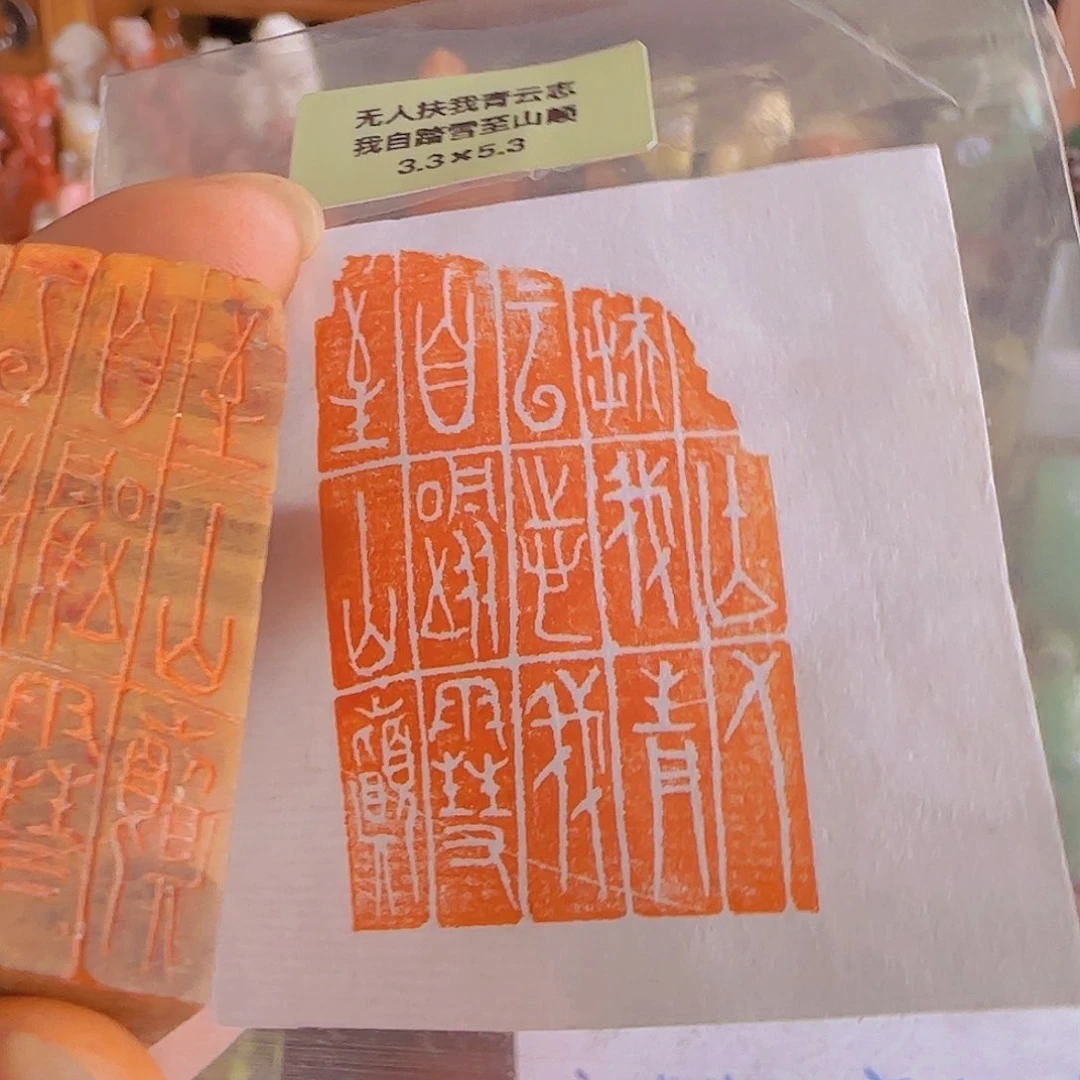 无人扶我青云志
我自踏雪至山巅
3.3×5.3
亾人
扶我青
云志我
自踏雪
至山巔